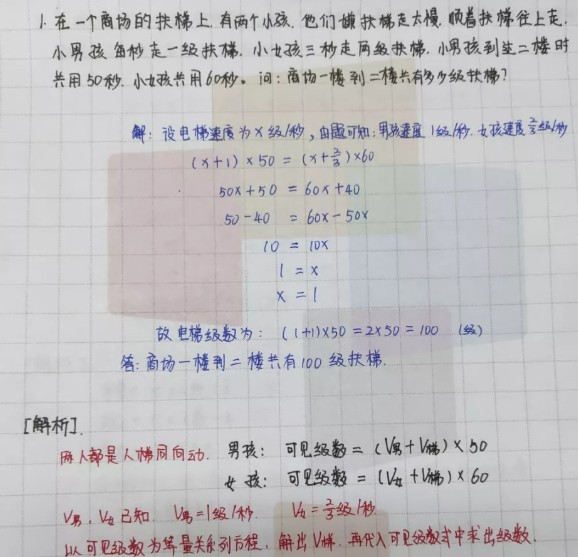 1. 在一个商场的扶梯上,有两个小孩,他们嫌扶梯走太慢,顺着扶梯往上走.
小男孩每秒走一级扶梯,小女孩三秒走两级扶梯,小男孩到达二楼时
共用50秒,小女孩共用60秒。问:商场一楼到二楼共有多少级扶梯?
解:设电梯速度为x级/秒,由题可知:男孩速度1级/秒.女孩速度2/3级/秒
(x+1)×50=(x+2/3)×60
50x+50=60x+40
50-40=60x-50x
10=10x
1=x
x=1
故电梯级数为:(1+1)×50=2×50=100(级)
答:商场一楼到二楼共有100级扶梯.
[解析].
两人都是人梯同向动. 男孩:可见级数=(V男+V梯)×50
女孩:可见级数=(V女+V梯)×60
V男、V女已知. V男=1级/秒. V女=2/3级/秒
以可见级数为等量关系列方程,解出V梯.再代入可见级数式中求出级数.